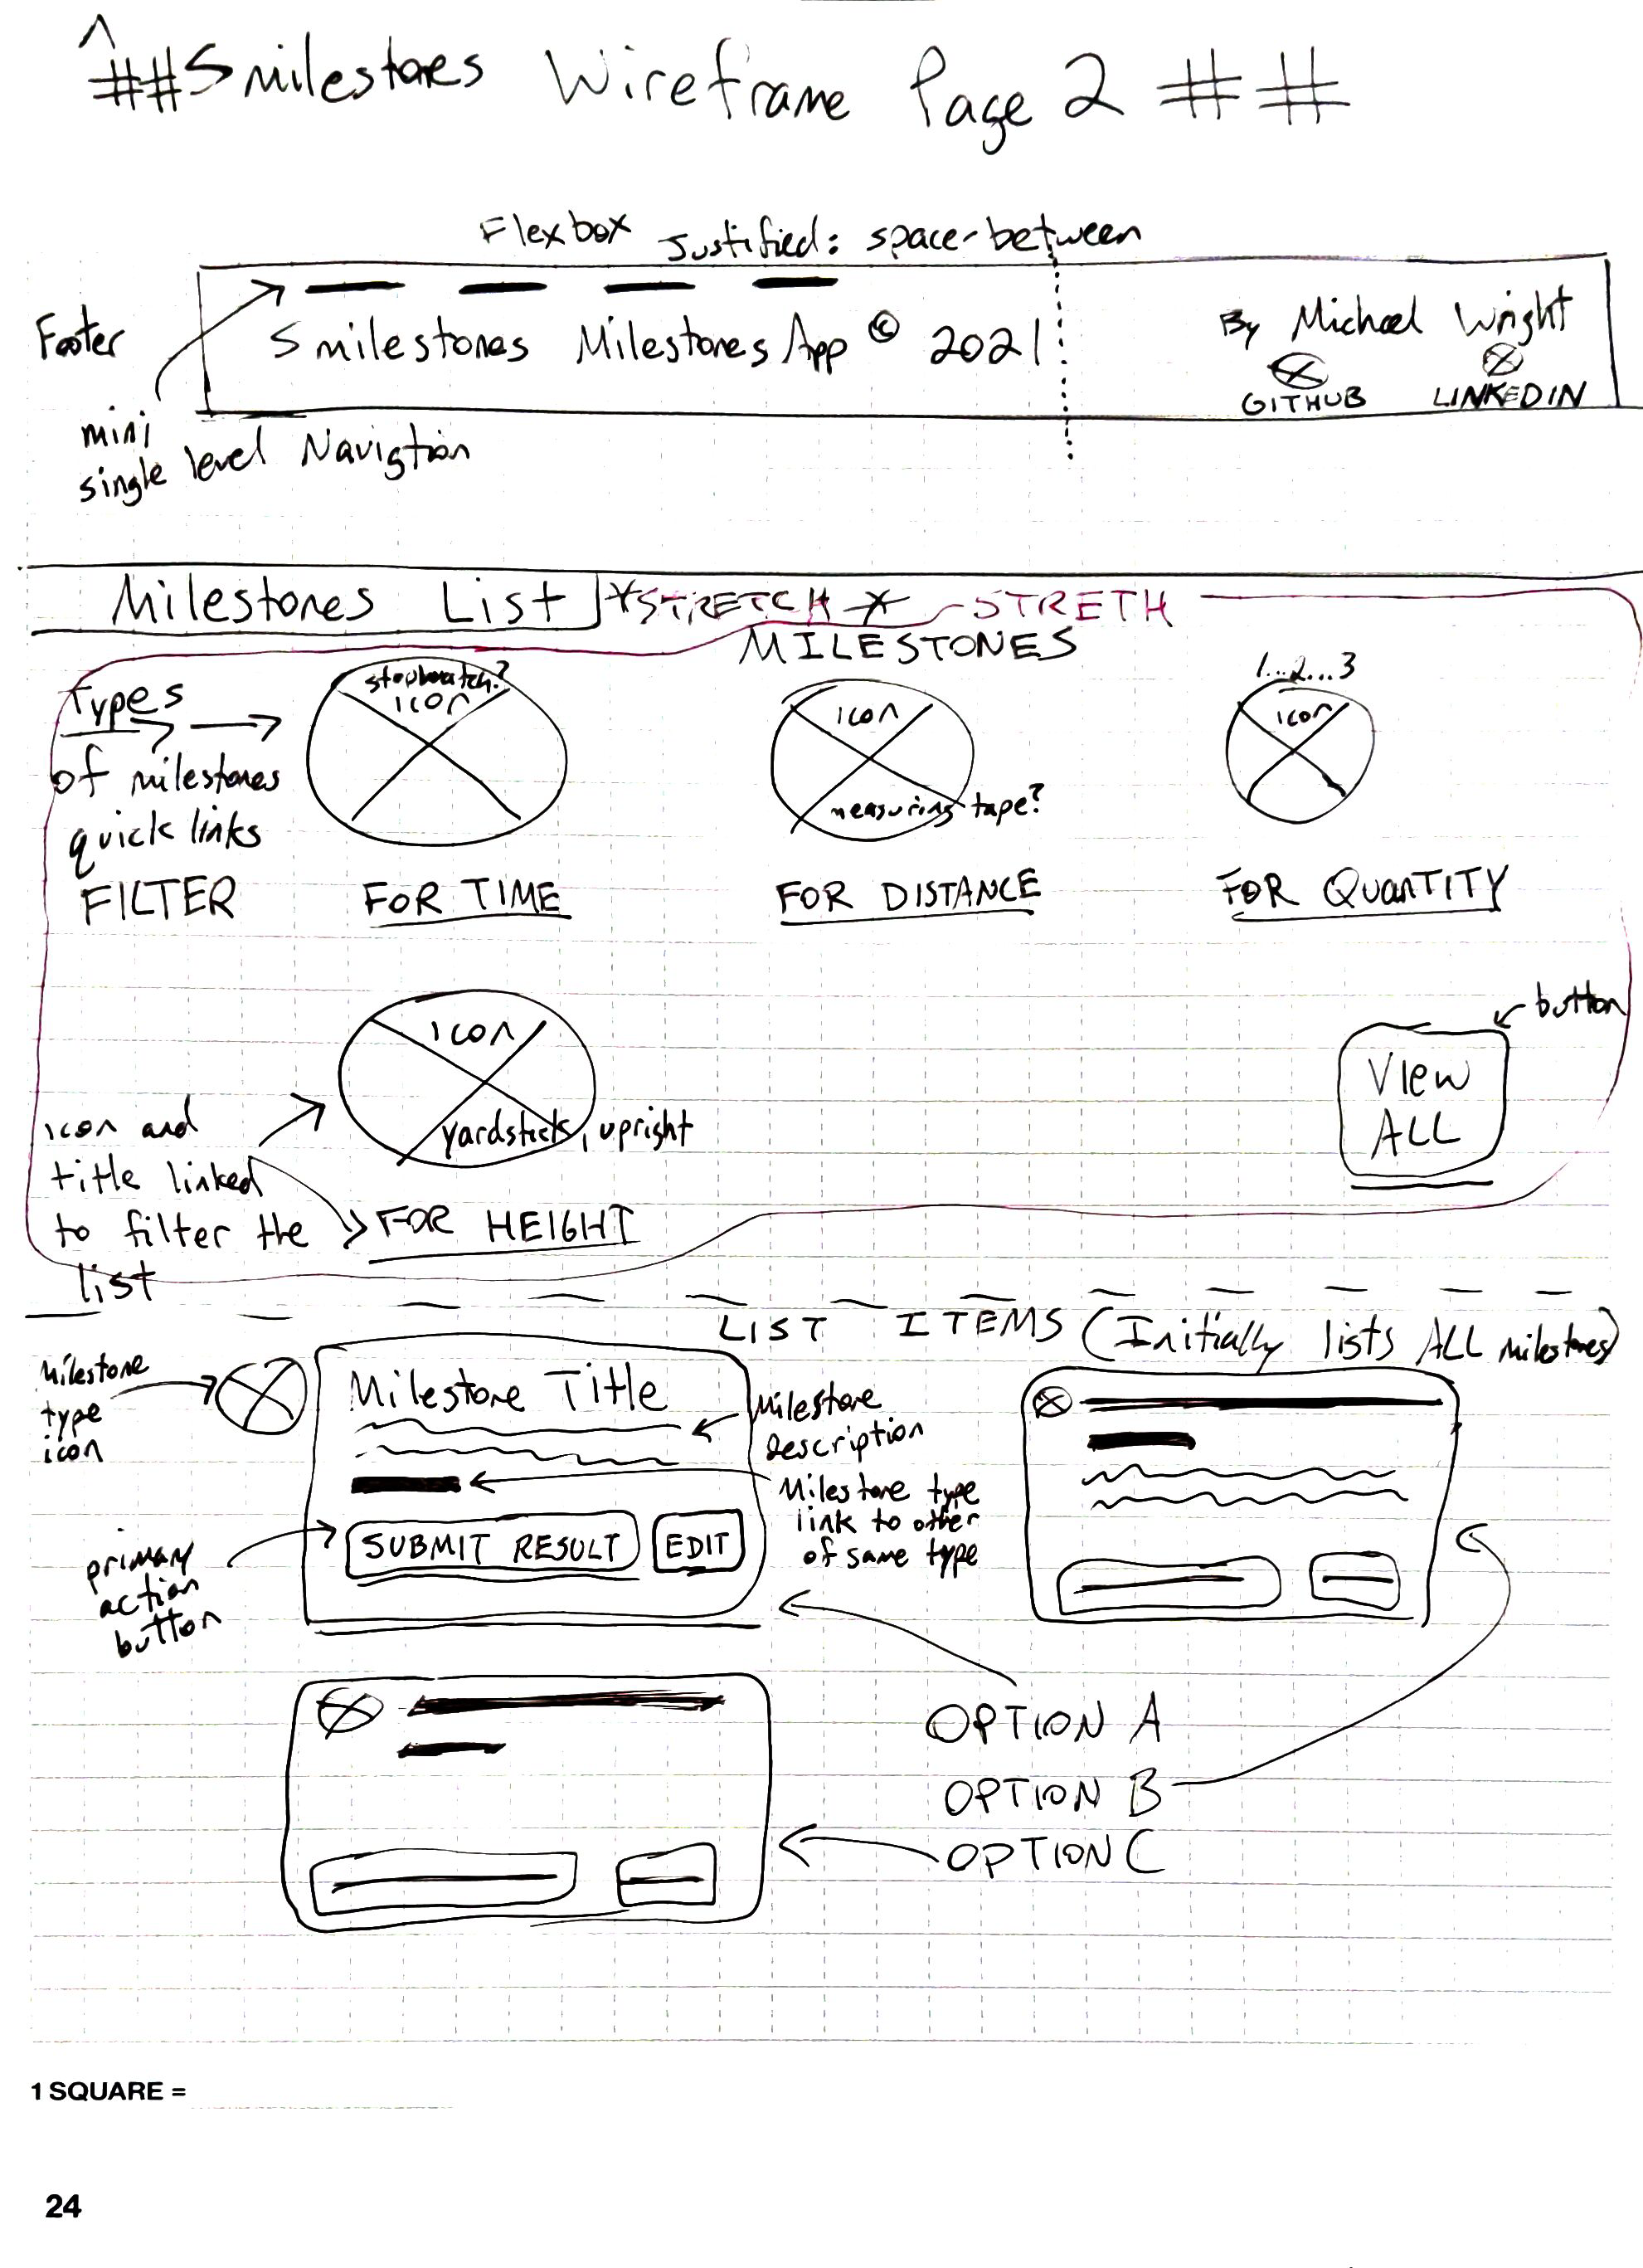 ^
##Smilestones Wireframe Page 2 ##
Flexbox Justified: space-between
Footer
Smilestones Milestones App © 2021
By Michael Wright
GITHUB LINKEDIN
mini
single level Navigtion
Milestones List *STRETCH* STRETH
MILESTONES
Types
of milestones
quick links
FILTER
stopwatch?
icon
FOR TIME
icon
measuring tape?
FOR DISTANCE
1...2...3
icon
FOR QUANTITY
icon
yardstick, upright
FOR HEIGHT
icon and
title linked
to filter the
list
button
VIEW
ALL
LIST ITEMS (Initially lists ALL milestones)
Milestone
type
icon
Milestone Title
Milestone
Description
Milestone type
link to other
of same type
SUBMIT RESULT EDIT
primary
action
button
OPTION A
OPTION B
OPTION C
1 SQUARE =
24